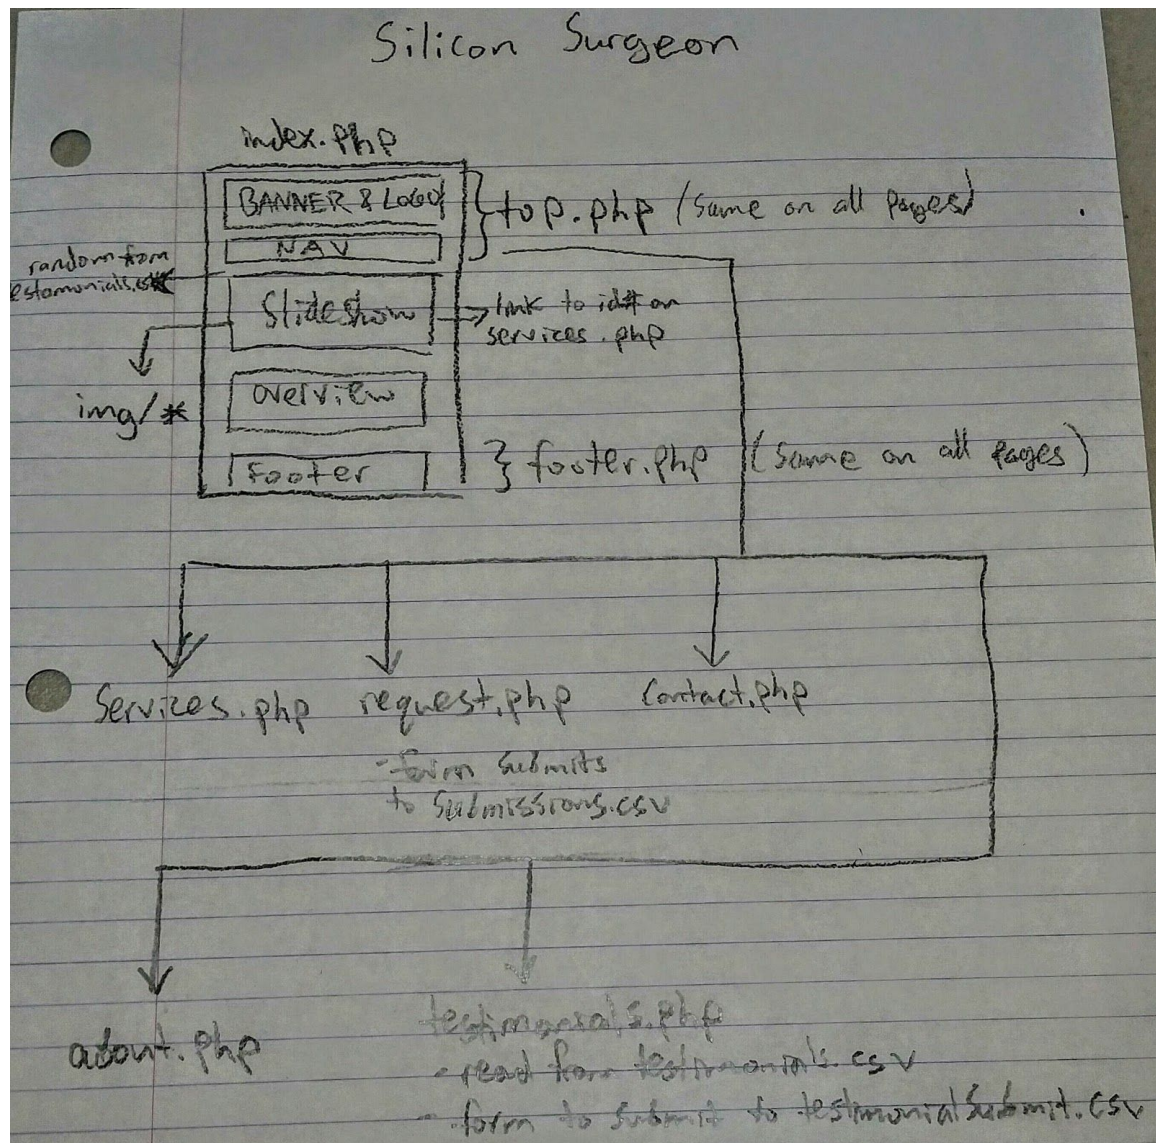 Silicon Surgeon
index.php
BANNER & LOGO
top.php (Same on all Pages)
NAV
random from
Slideshow
link to id# on
services.php
img/*
overview
Footer
footer.php (Same on all pages)
Services.php request.php Contact.php
-form Submits
to Submissions.csv
about.php
testimonials.php
- read from testimonials.csv
- form to submit to testimonialSubmit.csv